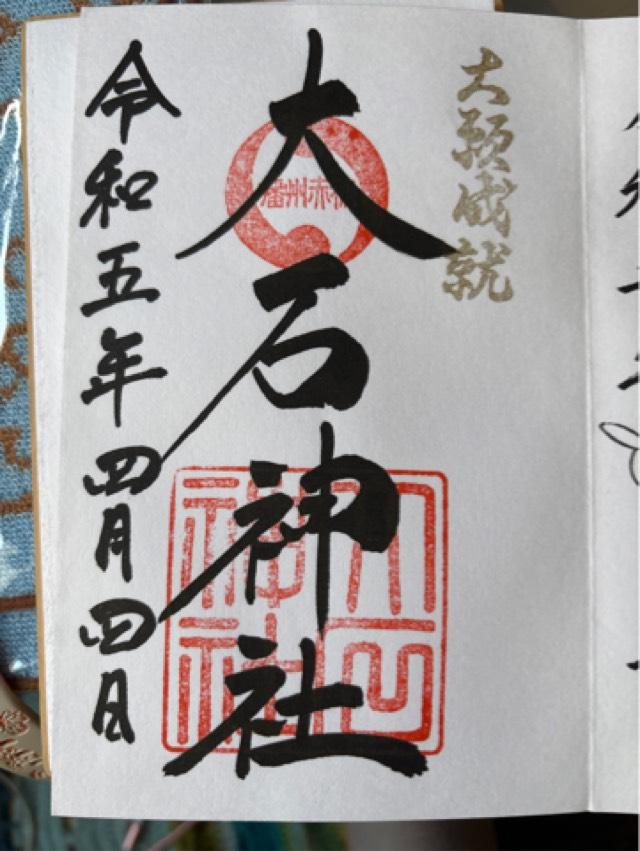 大願成就
播州赤穂
大石神社
大石神社
令和五年四月四日